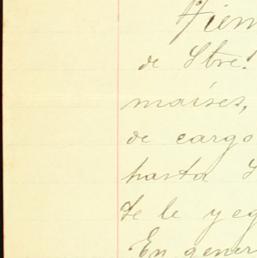 Tiem
de Sbre.
maises,
de cargo
hasta
te le y eg
En gener